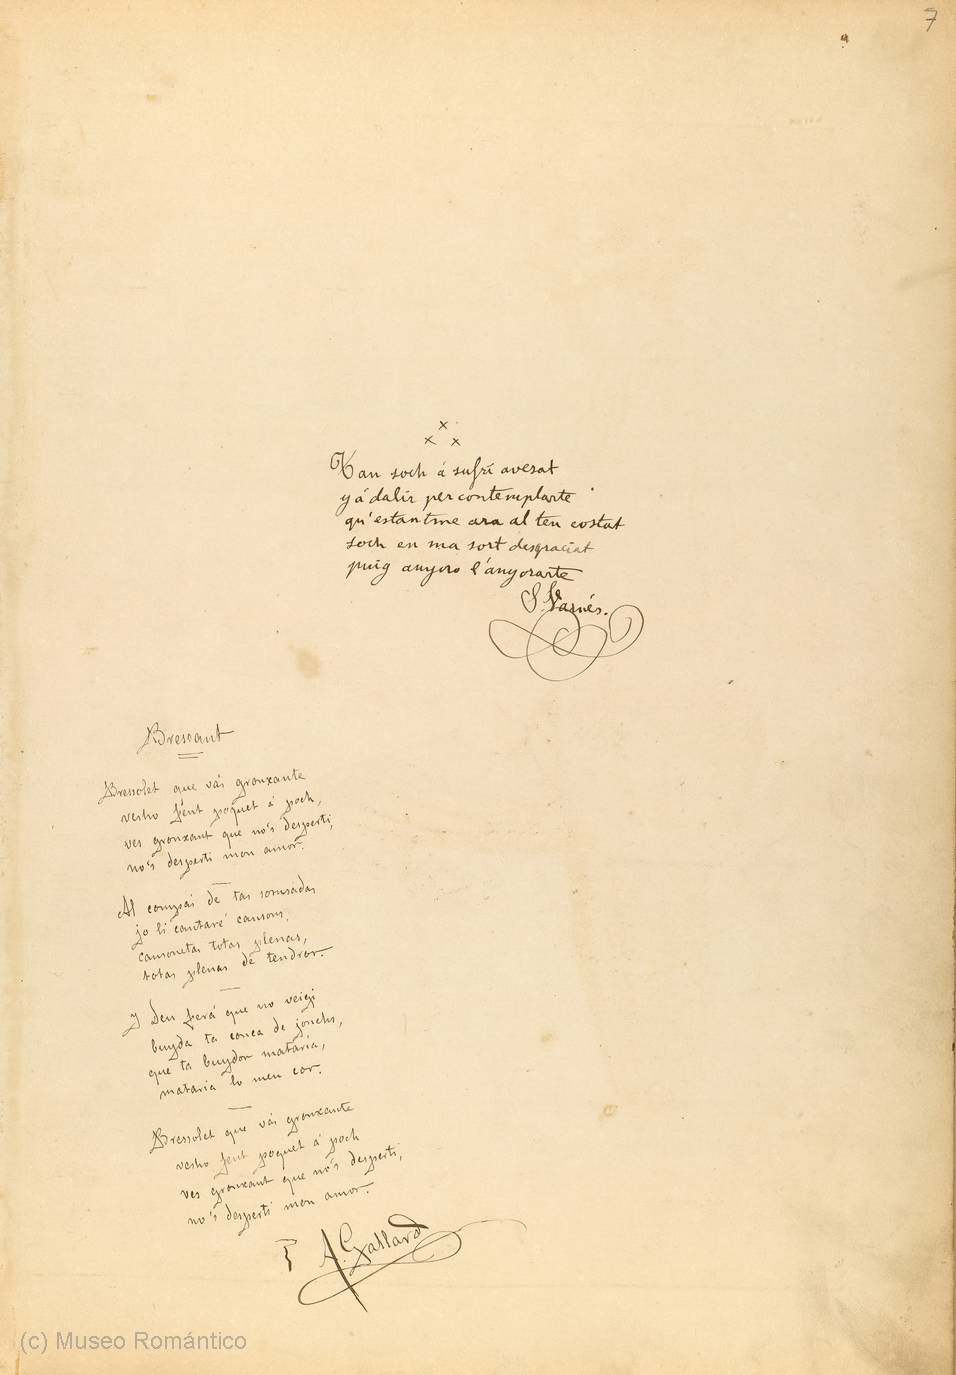 7
x
x x
Tan soch á sufrí avesat
y á dalir per contemplarte
qu'estantme ara al teu costat
soch en ma sort desgraciat
puig anyoro l'anyorarte
S. Farnés.
Bressant
Bressolet que vás gronxante
vesho fent poquet á poch,
ves gronxant que no's desperti,
no's desperti mon amor.
Al compás de tas sotusadas
jo li cantaré cansons,
cansonetas totas plenas,
totas plenas de tendror.
Y Deu fará que no veigi
buyda ta conca de jonchs,
que ta buydor mataria,
mataria lo meu cor.
Bressolet que vás gronxante
vesho fent poquet á poch
ves gronxant que no's desperti,
no's desperti mon amor.
A. Gallard
(c) Museo Romántico